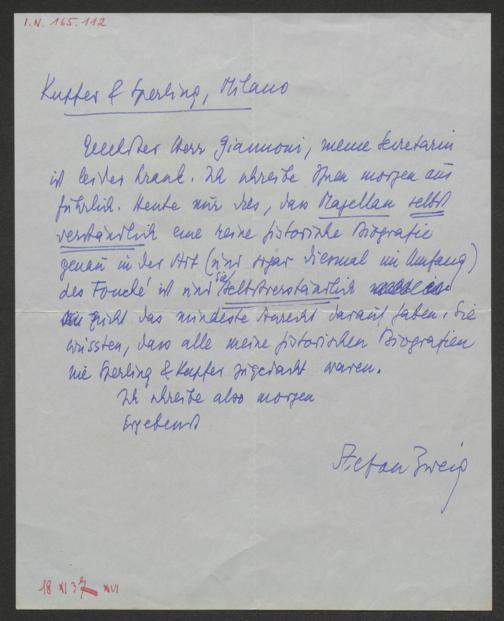 I.N. 165.112
Kupfer & Sperling, Milano
Geehrter Herr Giannoni, meine Secretärin
ist leider krank. Ich schreibe Ihnen morgen aus
führlich. Heute nur dies, dass Magellan selbst
verständlich eine reine historische Biografie
genau in der Art (und sogar diesmal im Umfang)
des Fouché ist und Sie selbstverständlich
nicht das mindeste Anrecht darauf haben. Sie
wussten, dass alle meine historischen Biografien
nie Sperling & Kupfer zugedacht waren.
Ich schreibe also morgen
Ergebenst
Stefan Zweig
18 XI 37 XVI